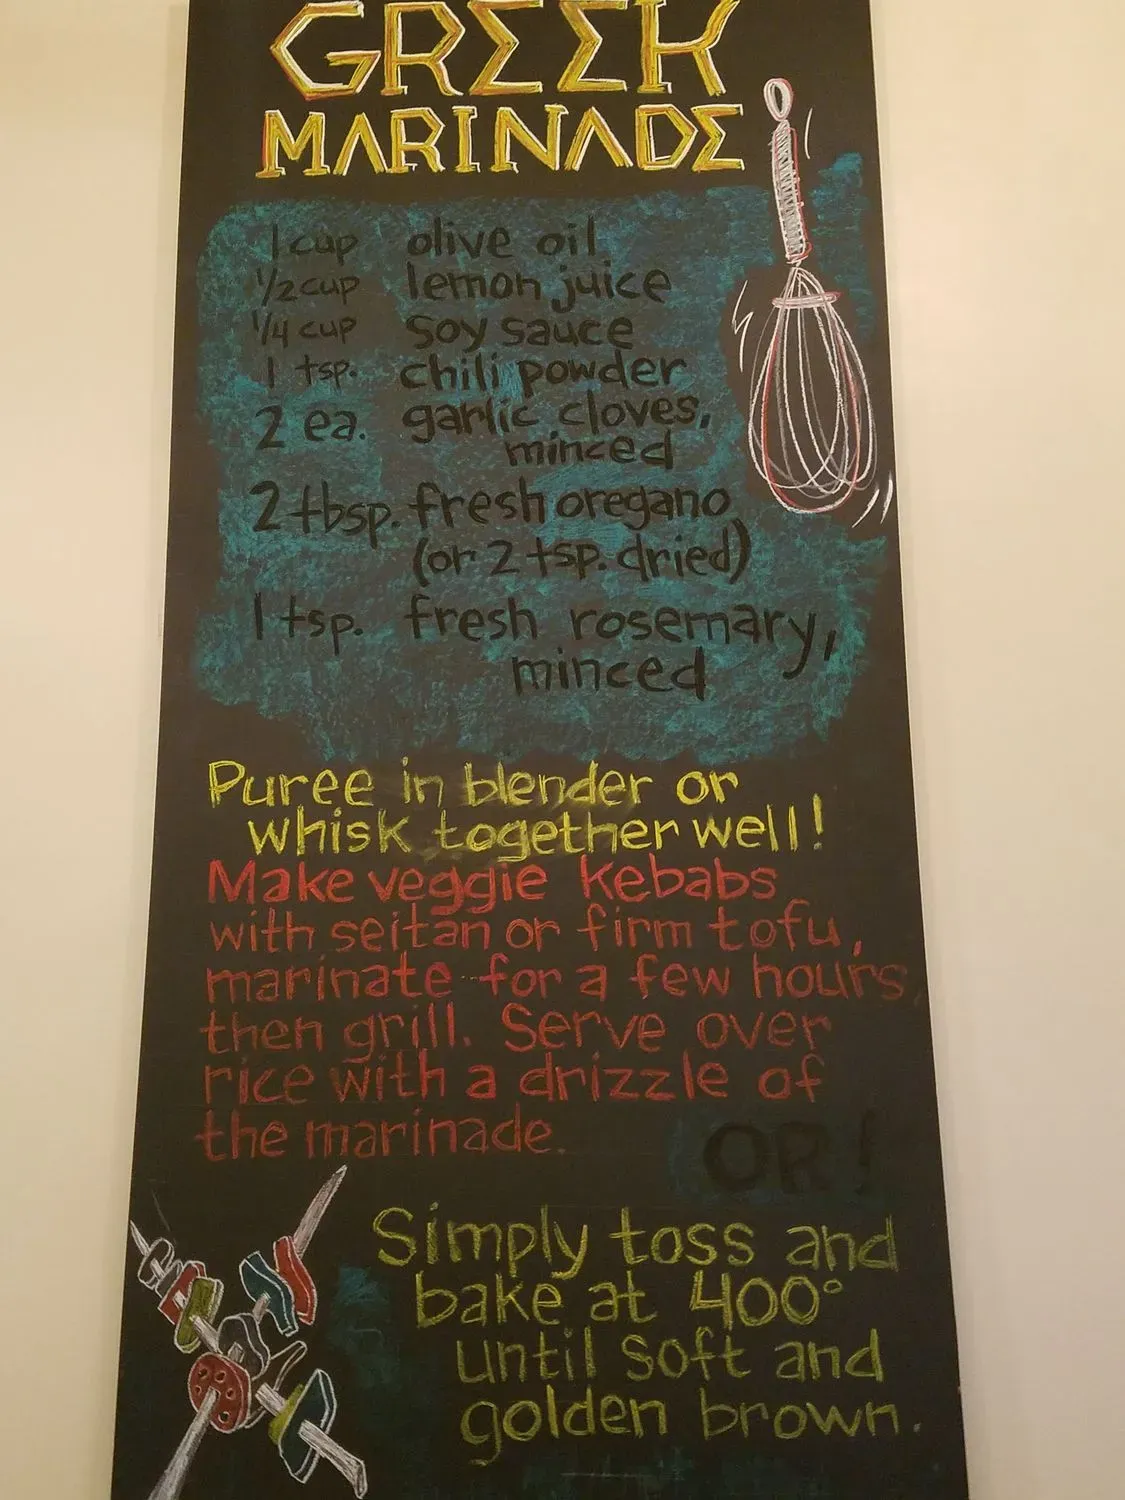 GRΣΣK
MARINADΣ
1 cup olive oil
1/2 cup lemon juice
1/4 cup soy sauce
1 tsp. chili powder
2 ea. garlic cloves,
minced
2 tbsp. fresh oregano
(or 2 tsp. dried)
1 tsp. fresh rosemary,
minced
Puree in blender or
whisk together well!
Make veggie kebabs
with seitan or firm tofu,
marinate for a few hours,
then grill. Serve over
rice with a drizzle of
the marinade.
OR!
Simply toss and
bake at 400°
until soft and
golden brown.